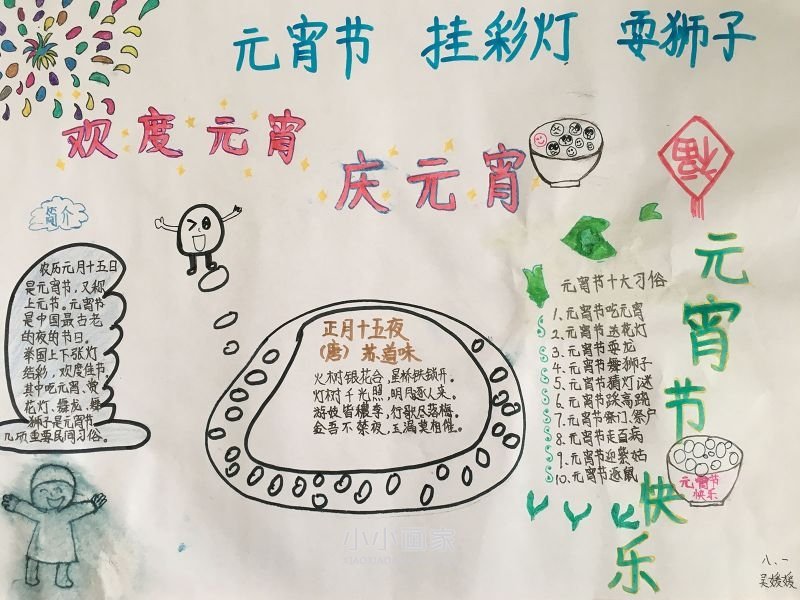 元宵节 挂彩灯 耍狮子
欢度元宵
庆元宵
福
简介
农历元月十五日
是元宵节，又称
上元节。元宵节
是中国最古老
的夜的节日。
举国上下张灯
结彩，欢度佳节
其中吃元宵、赏
花灯、舞龙、舞
狮子是元宵节
几项重要民间习俗。
正月十五夜
（唐）苏道味
火树银花合，星桥铁锁开。
灯树千光照，明月逐人来。
游伎皆穠李，行歌尽落梅。
金吾不禁夜，玉漏莫相催。
元宵节十大习俗
1、元宵节吃元宵
2、元宵节送花灯
3、元宵节耍龙
4、元宵节舞狮子
5、元宵节猜灯谜
6、元宵节踩高跷
7、元宵节祭门、祭户
8、元宵节走百病
9、元宵节迎紫姑
10、元宵节逐鼠
元宵节快乐
元宵节
快乐
八、一
吴媛媛
小小画家